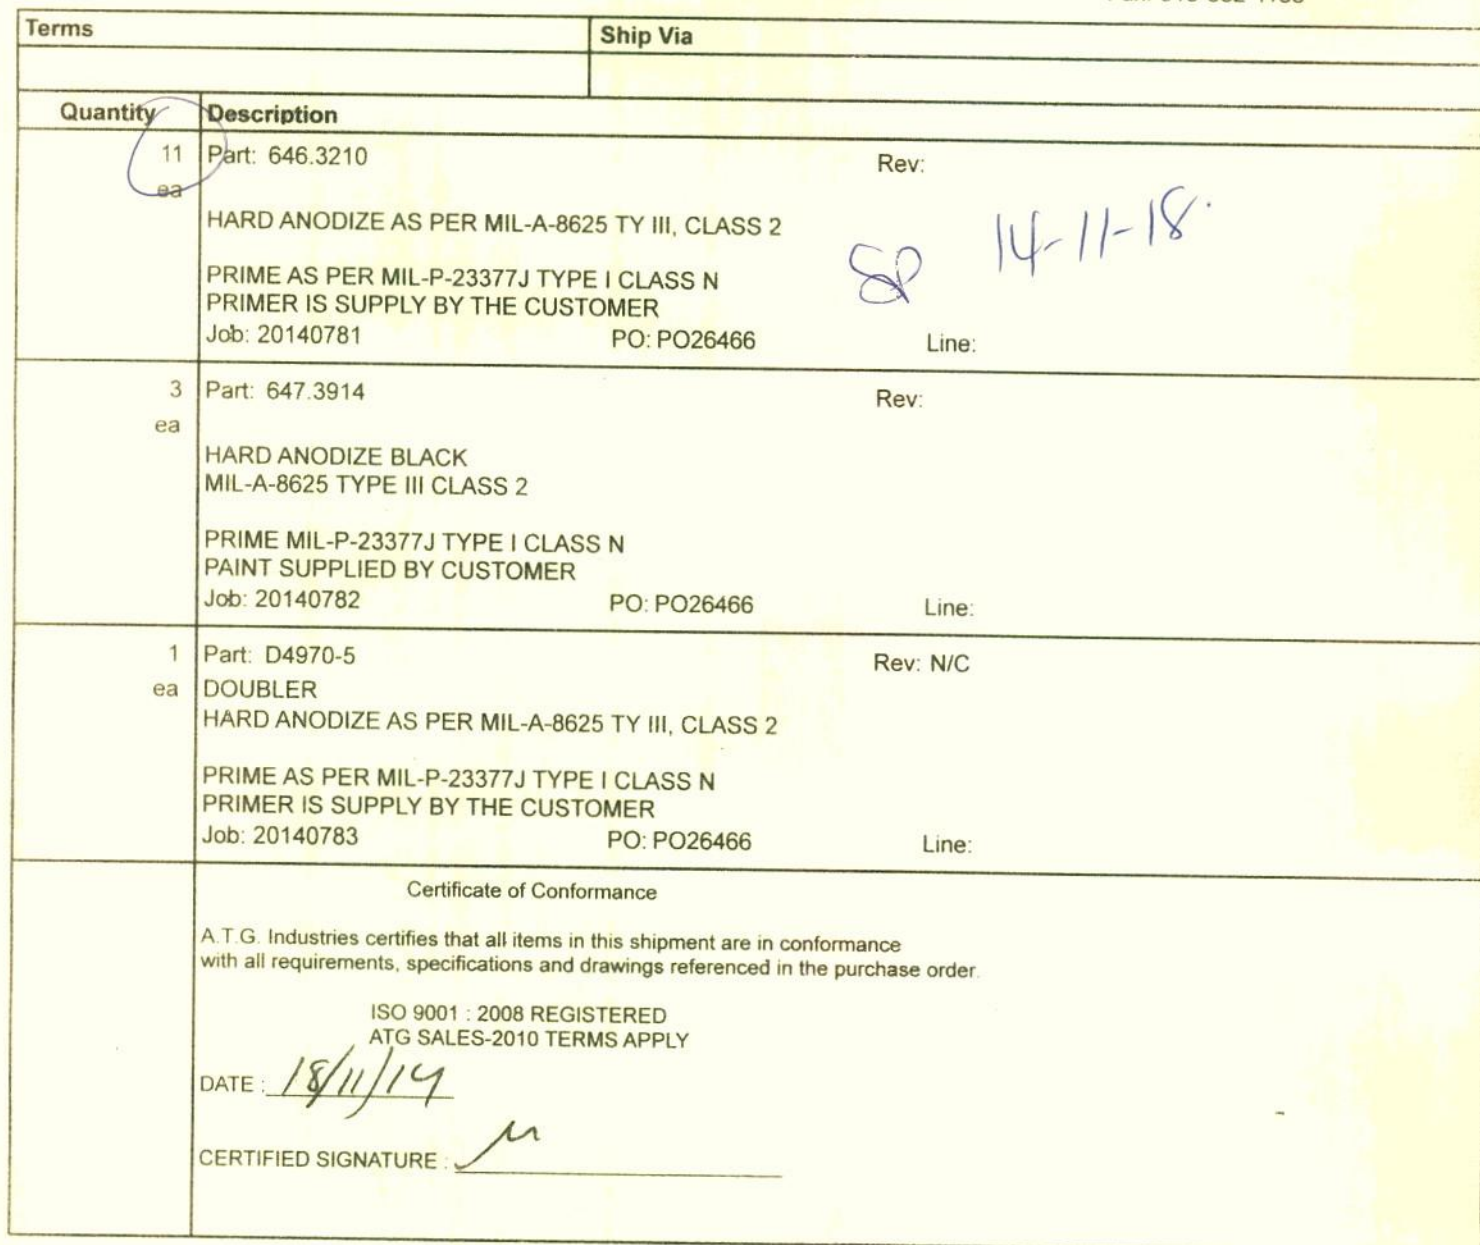 Terms Ship Via
Quantity Description
11 Part: 646.3210 Rev:
ea
HARD ANODIZE AS PER MIL-A-8625 TY III, CLASS 2
SP 14-11-18.
PRIME AS PER MIL-P-23377J TYPE I CLASS N
PRIMER IS SUPPLY BY THE CUSTOMER
Job: 20140781 PO: PO26466 Line:
3 Part: 647.3914 Rev:
ea
HARD ANODIZE BLACK
MIL-A-8625 TYPE III CLASS 2
PRIME MIL-P-23377J TYPE I CLASS N
PAINT SUPPLIED BY CUSTOMER
Job: 20140782 PO: PO26466 Line:
1 Part: D4970-5 Rev: N/C
ea DOUBLER
HARD ANODIZE AS PER MIL-A-8625 TY III, CLASS 2
PRIME AS PER MIL-P-23377J TYPE I CLASS N
PRIMER IS SUPPLY BY THE CUSTOMER
Job: 20140783 PO: PO26466 Line:
Certificate of Conformance
A.T.G. Industries certifies that all items in this shipment are in conformance
with all requirements, specifications and drawings referenced in the purchase order.
ISO 9001 : 2008 REGISTERED
ATG SALES-2010 TERMS APPLY
DATE : 18/11/14
CERTIFIED SIGNATURE :